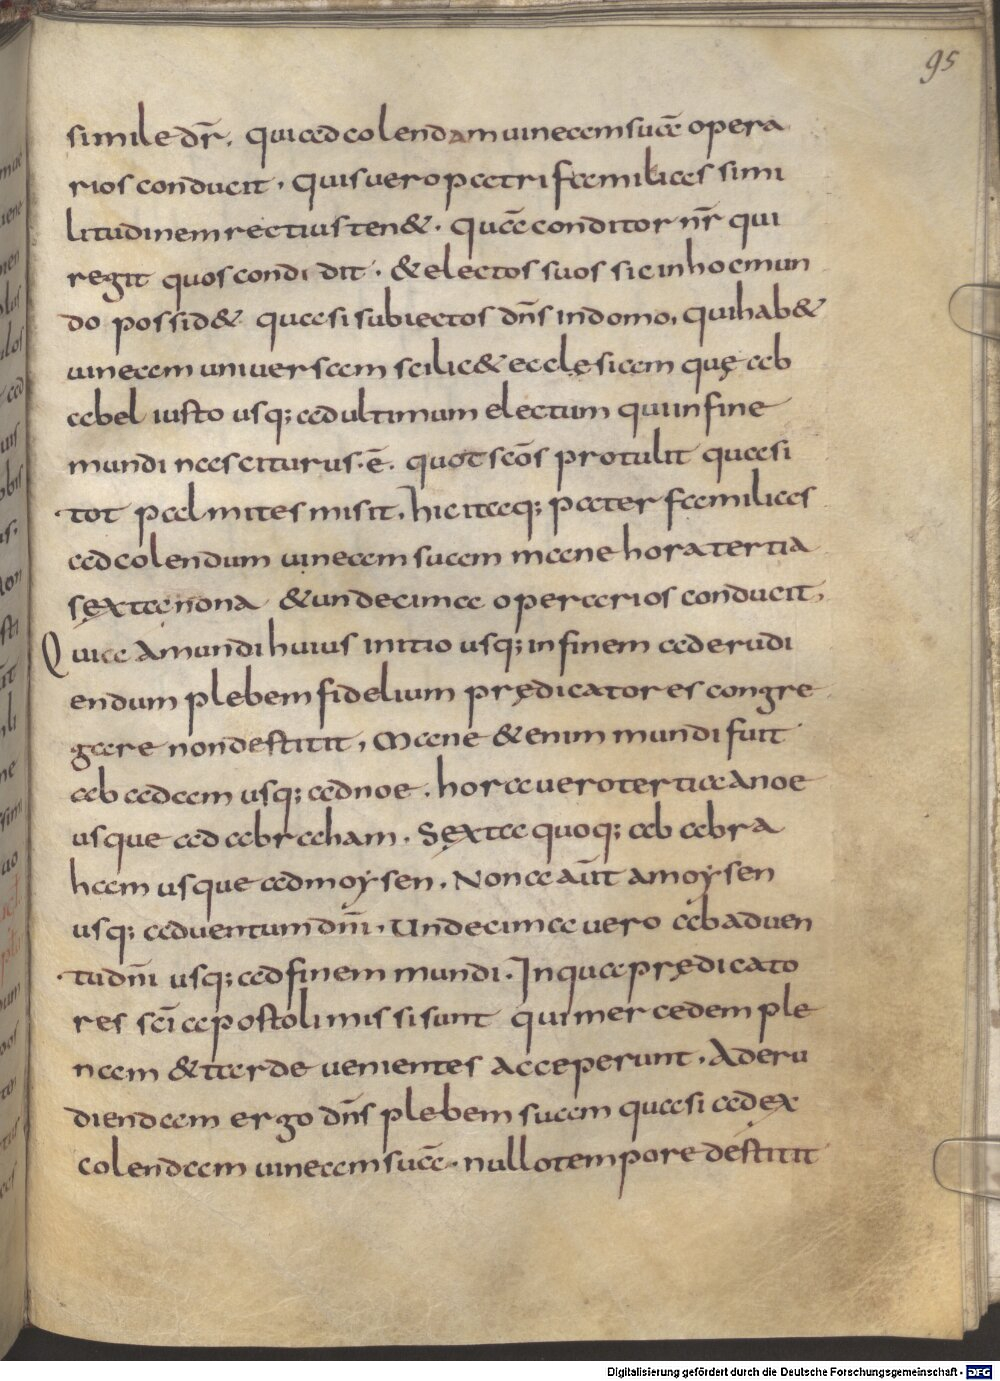 95
simile dr̄. qui ad colendam uineam suā opera
rios conducit. quis uero patrifamilias simi
litudinem rectius ten&. quā conditor nr̄ qui
regit quos condidit. & electos suos sic in hoc mun
do possid& quasi subiectos dn̄s in domo, qui hab&
uineam uniuersam scilic& ecclęsiam quę ab
abel iusto usq; ad ultimum electum qui in fine
mundi nasciturus. ē. quot scōs protulit quasi
tot palmites misit. hic itaq; pater familias
ad colendum uineam suam mane hora tertia
sęxta nona & undecima operarios conducit,
Quia a mundi huius initio usq; in finem ad erudi
endum plebem fidelium prędicatores congre
gare non destitit, Mane &enim mundi fuit
ab adam usq; ad noe. hora uero tertia a noe
usque ad abraham. Sęxta quoq; ab abra
ham usque ad moysen. Nona aūt a moysen
usq; aduentum dn̄i. Undecima uero ab aduen
tu dn̄i usq; ad finem mundi. In qua prędicato
res sc̄i apostoli missi sunt qui mercedem ple
nam & tarde uenientes acceperunt. Ad eru
diendam ergo dn̄s plebem suam quasi ad ęx
colendam uineam suā. nullo tempore destitit
Digitalisierung gefördert durch die Deutsche Forschungsgemeinschaft - DFG